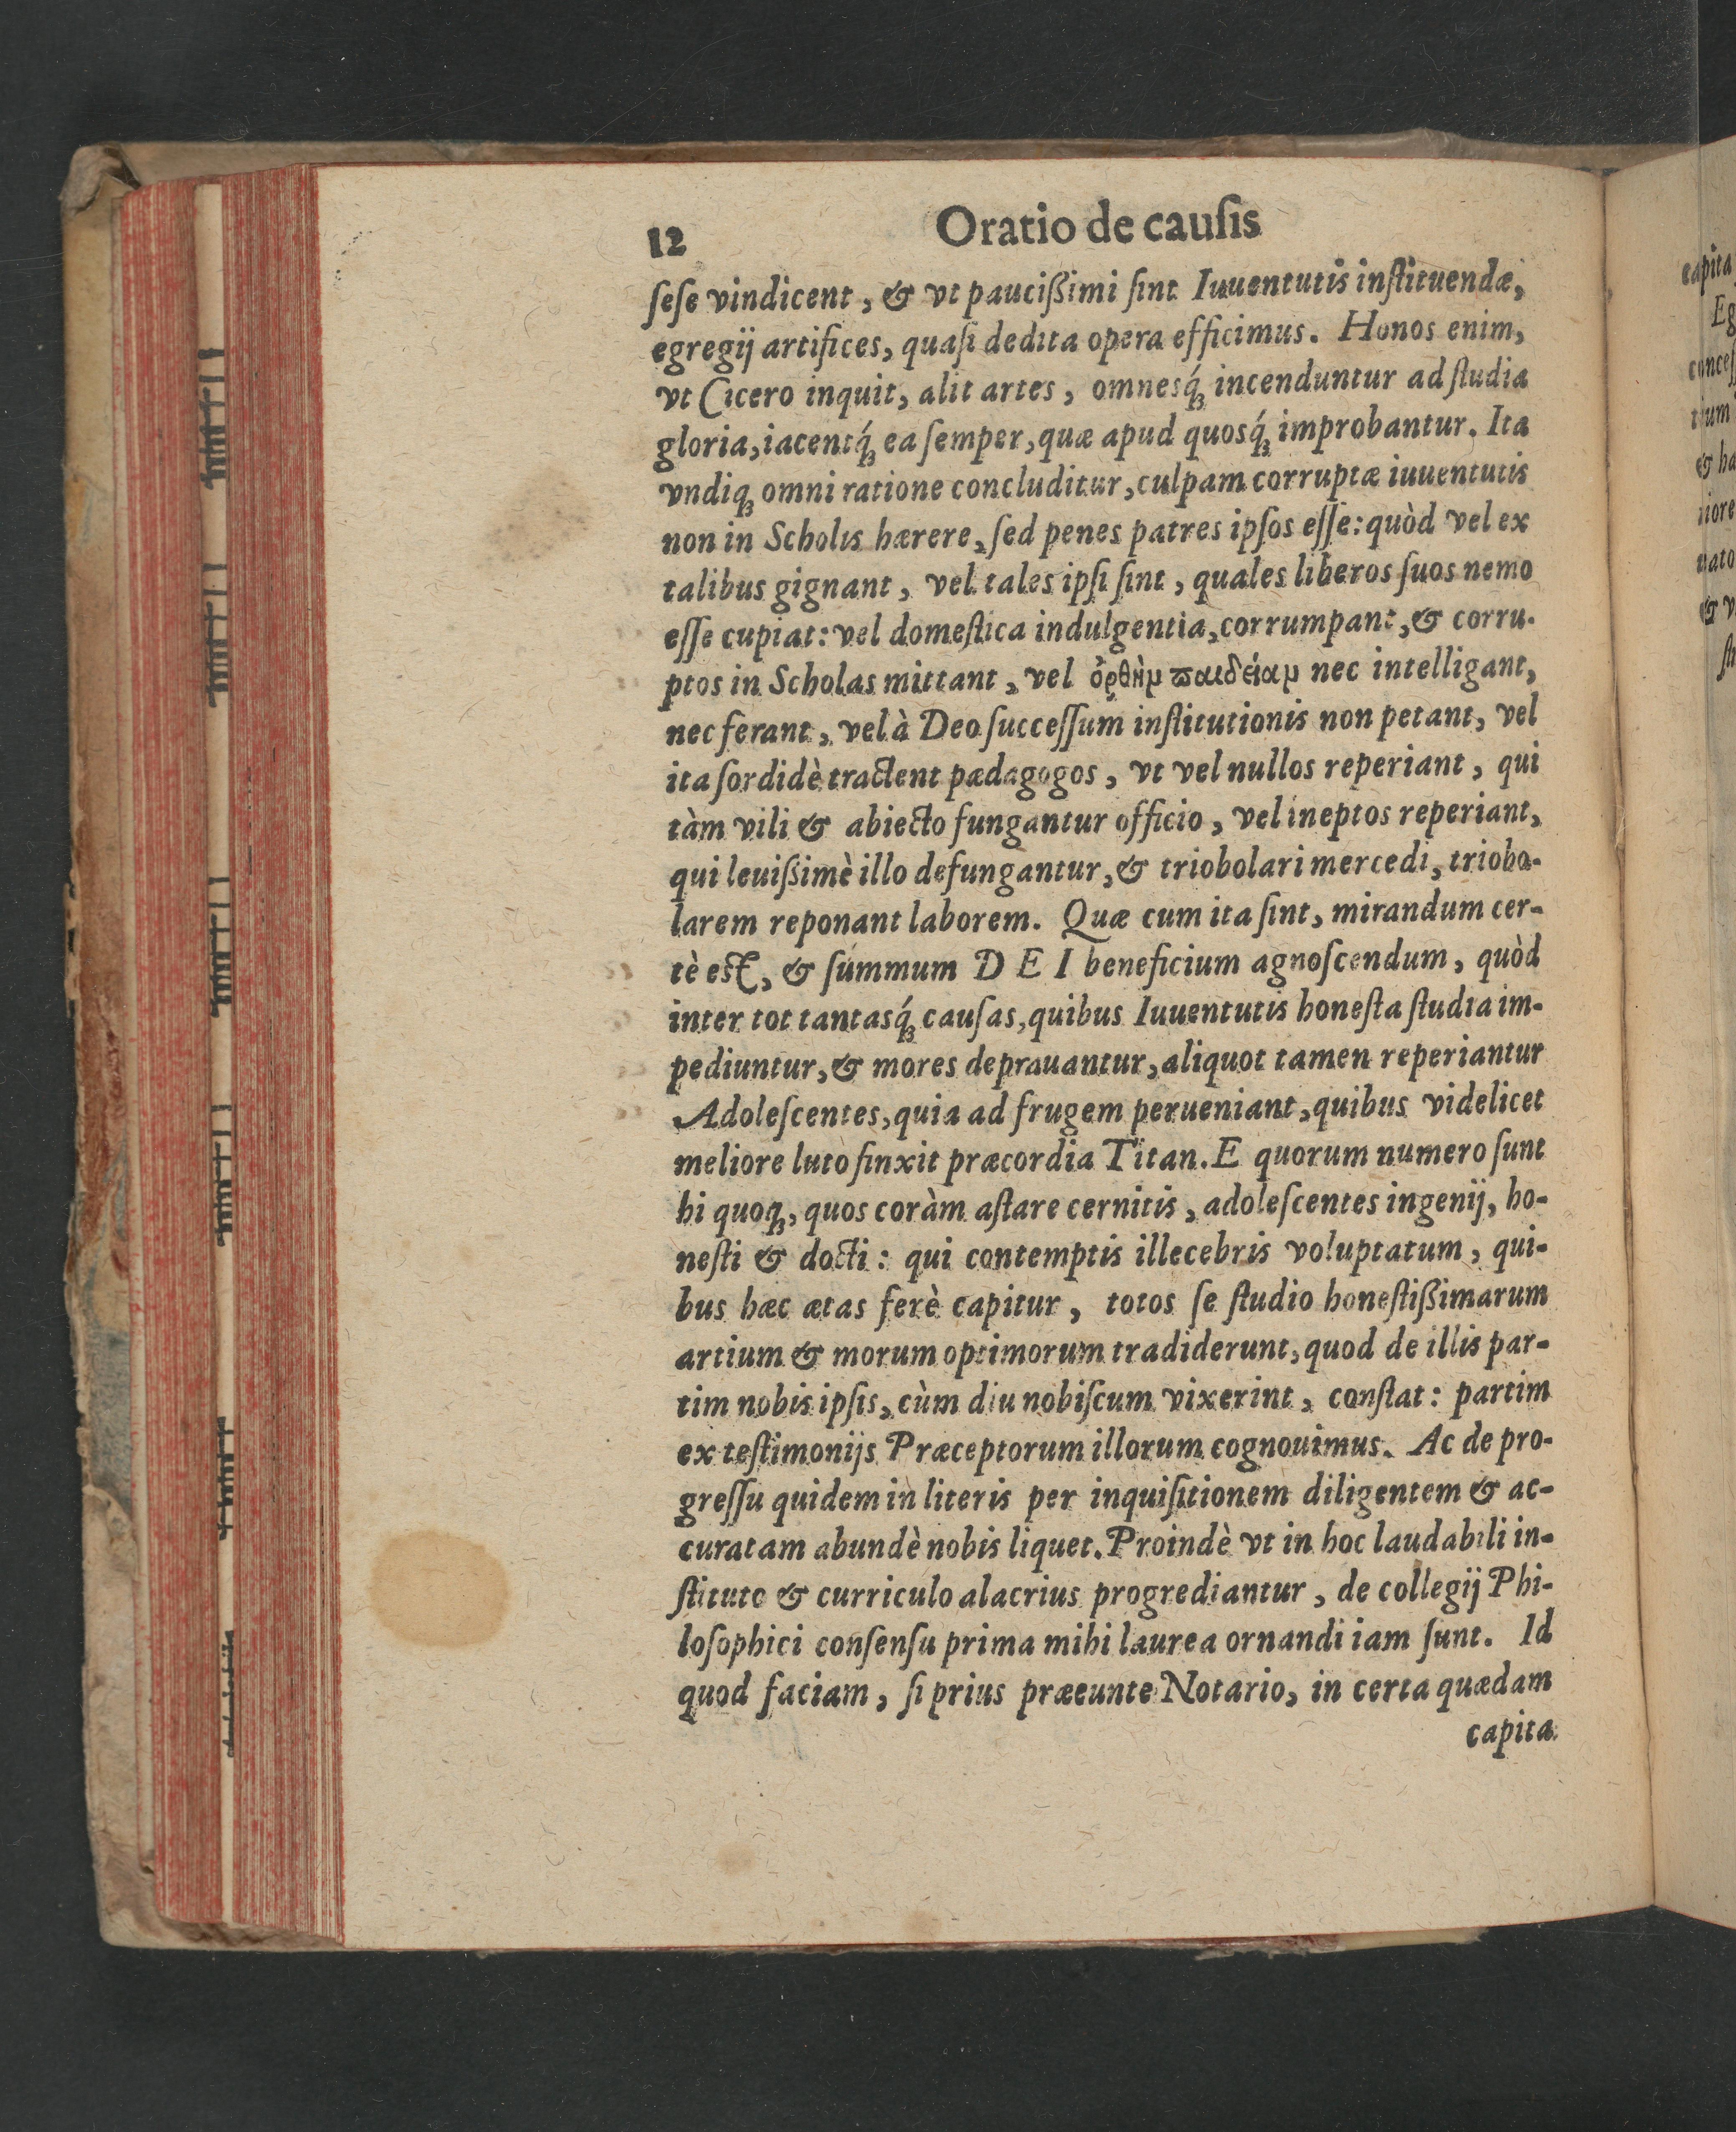 12 Oratio de cauſis
ſeſe vindicent, & vt pauciſſimi ſint Iuuentutis inſtituendæ,
egregij artifices, quaſi dedita opera efficimus. Honos enim,
vt Cicero inquit, alit artes, omnesq́; incenduntur ad ſtudia
gloria, iacentq́; ea ſemper, quæ apud quosq́; improbantur. Ita
vndiq; omni ratione concluditur, culpam corruptæ iuuentutis
non in Scholis hærere, ſed penes patres ipſos eſſe: quòd vel ex
talibus gignant, vel tales ipſi ſint, quales liberos ſuos nemo
eſſe cupiat: vel domeſtica indulgentia, corrumpant, & corru-
ptos in Scholas mittant, vel ὀρθὴμ παιδείαμ nec intelligant,
nec ferant, vel à Deo ſucceſſum inſtitutionis non petant, vel
ita ſordidè tractent pædagogos, vt vel nullos reperiant, qui
tàm vili & abiecto fungantur officio, vel ineptos reperiant,
qui leuiſſimè illo defungantur, & triobolari mercedi, triobo-
larem reponant laborem. Quæ cum ita ſint, mirandum cer-
tè est, & ſummum DEI beneficium agnoſcendum, quòd
inter tot tantasq́; cauſas, quibus Iuuentutis honeſta ſtudia im-
pediuntur, & mores deprauantur, aliquot tamen reperiantur
Adoleſcentes, quia ad frugem perueniant, quibus videlicet
meliore luto finxit præcordia Titan. E quorum numero ſunt
hi quoq;, quos coràm aſtare cernitis, adoleſcentes ingenij, ho-
neſti & docti: qui contemptis illecebris voluptatum, qui-
bus hæc ætas ferè capitur, totos ſe ſtudio honeſtiſſimarum
artium & morum optimorum tradiderunt, quod de illis par-
tim nobis ipſis, cùm diu nobiſcum vixerint, conſtat: partim
ex teſtimonijs Præceptorum illorum cognouimus. Ac de pro-
greſſu quidem in literis per inquiſitionem diligentem & ac-
curatam abundè nobis liquet. Proindè vt in hoc laudabili in-
ſtituto & curriculo alacrius progrediantur, de collegij Phi-
loſophici conſenſu prima mihi laurea ornandi iam ſunt. Id
quod faciam, ſi prius præeunte Notario, in certa quædam
capita
capita
Eg
& ha
& v